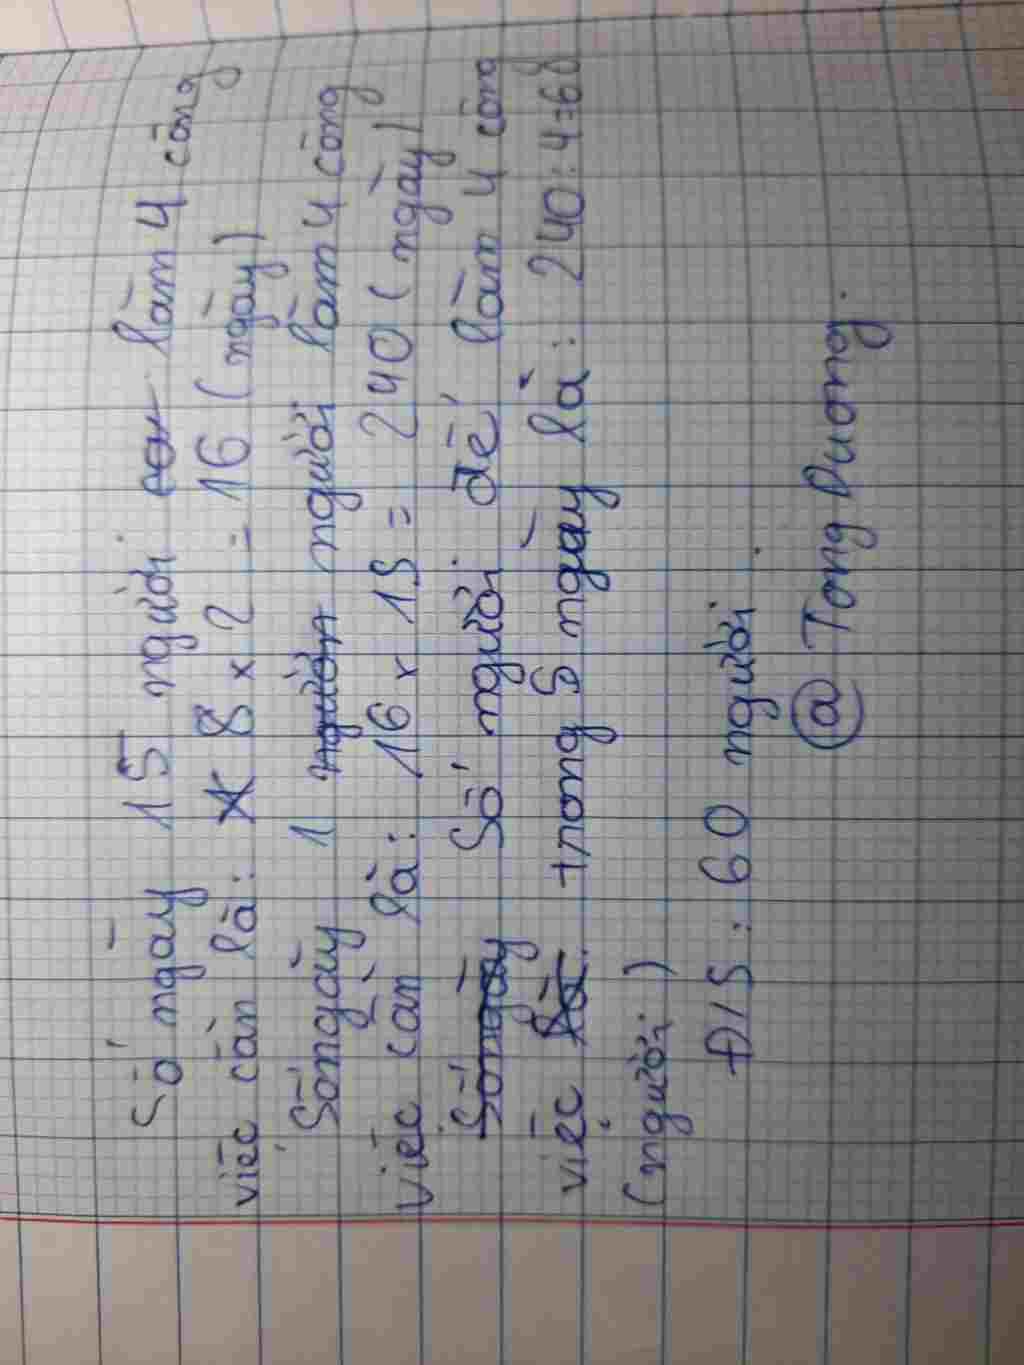 Số ngày 15 người làm 4 công
việc cần là: 8 x 2 = 16 (ngày)
Số ngày 1 người làm 4 công
việc cần là: 16 x 15 = 240 (ngày)
Số người để làm 4 công
việc trong 5 ngày là: 240 : 4 = 60
(người)
Đ/S: 60 người.
@ Tong Duong.